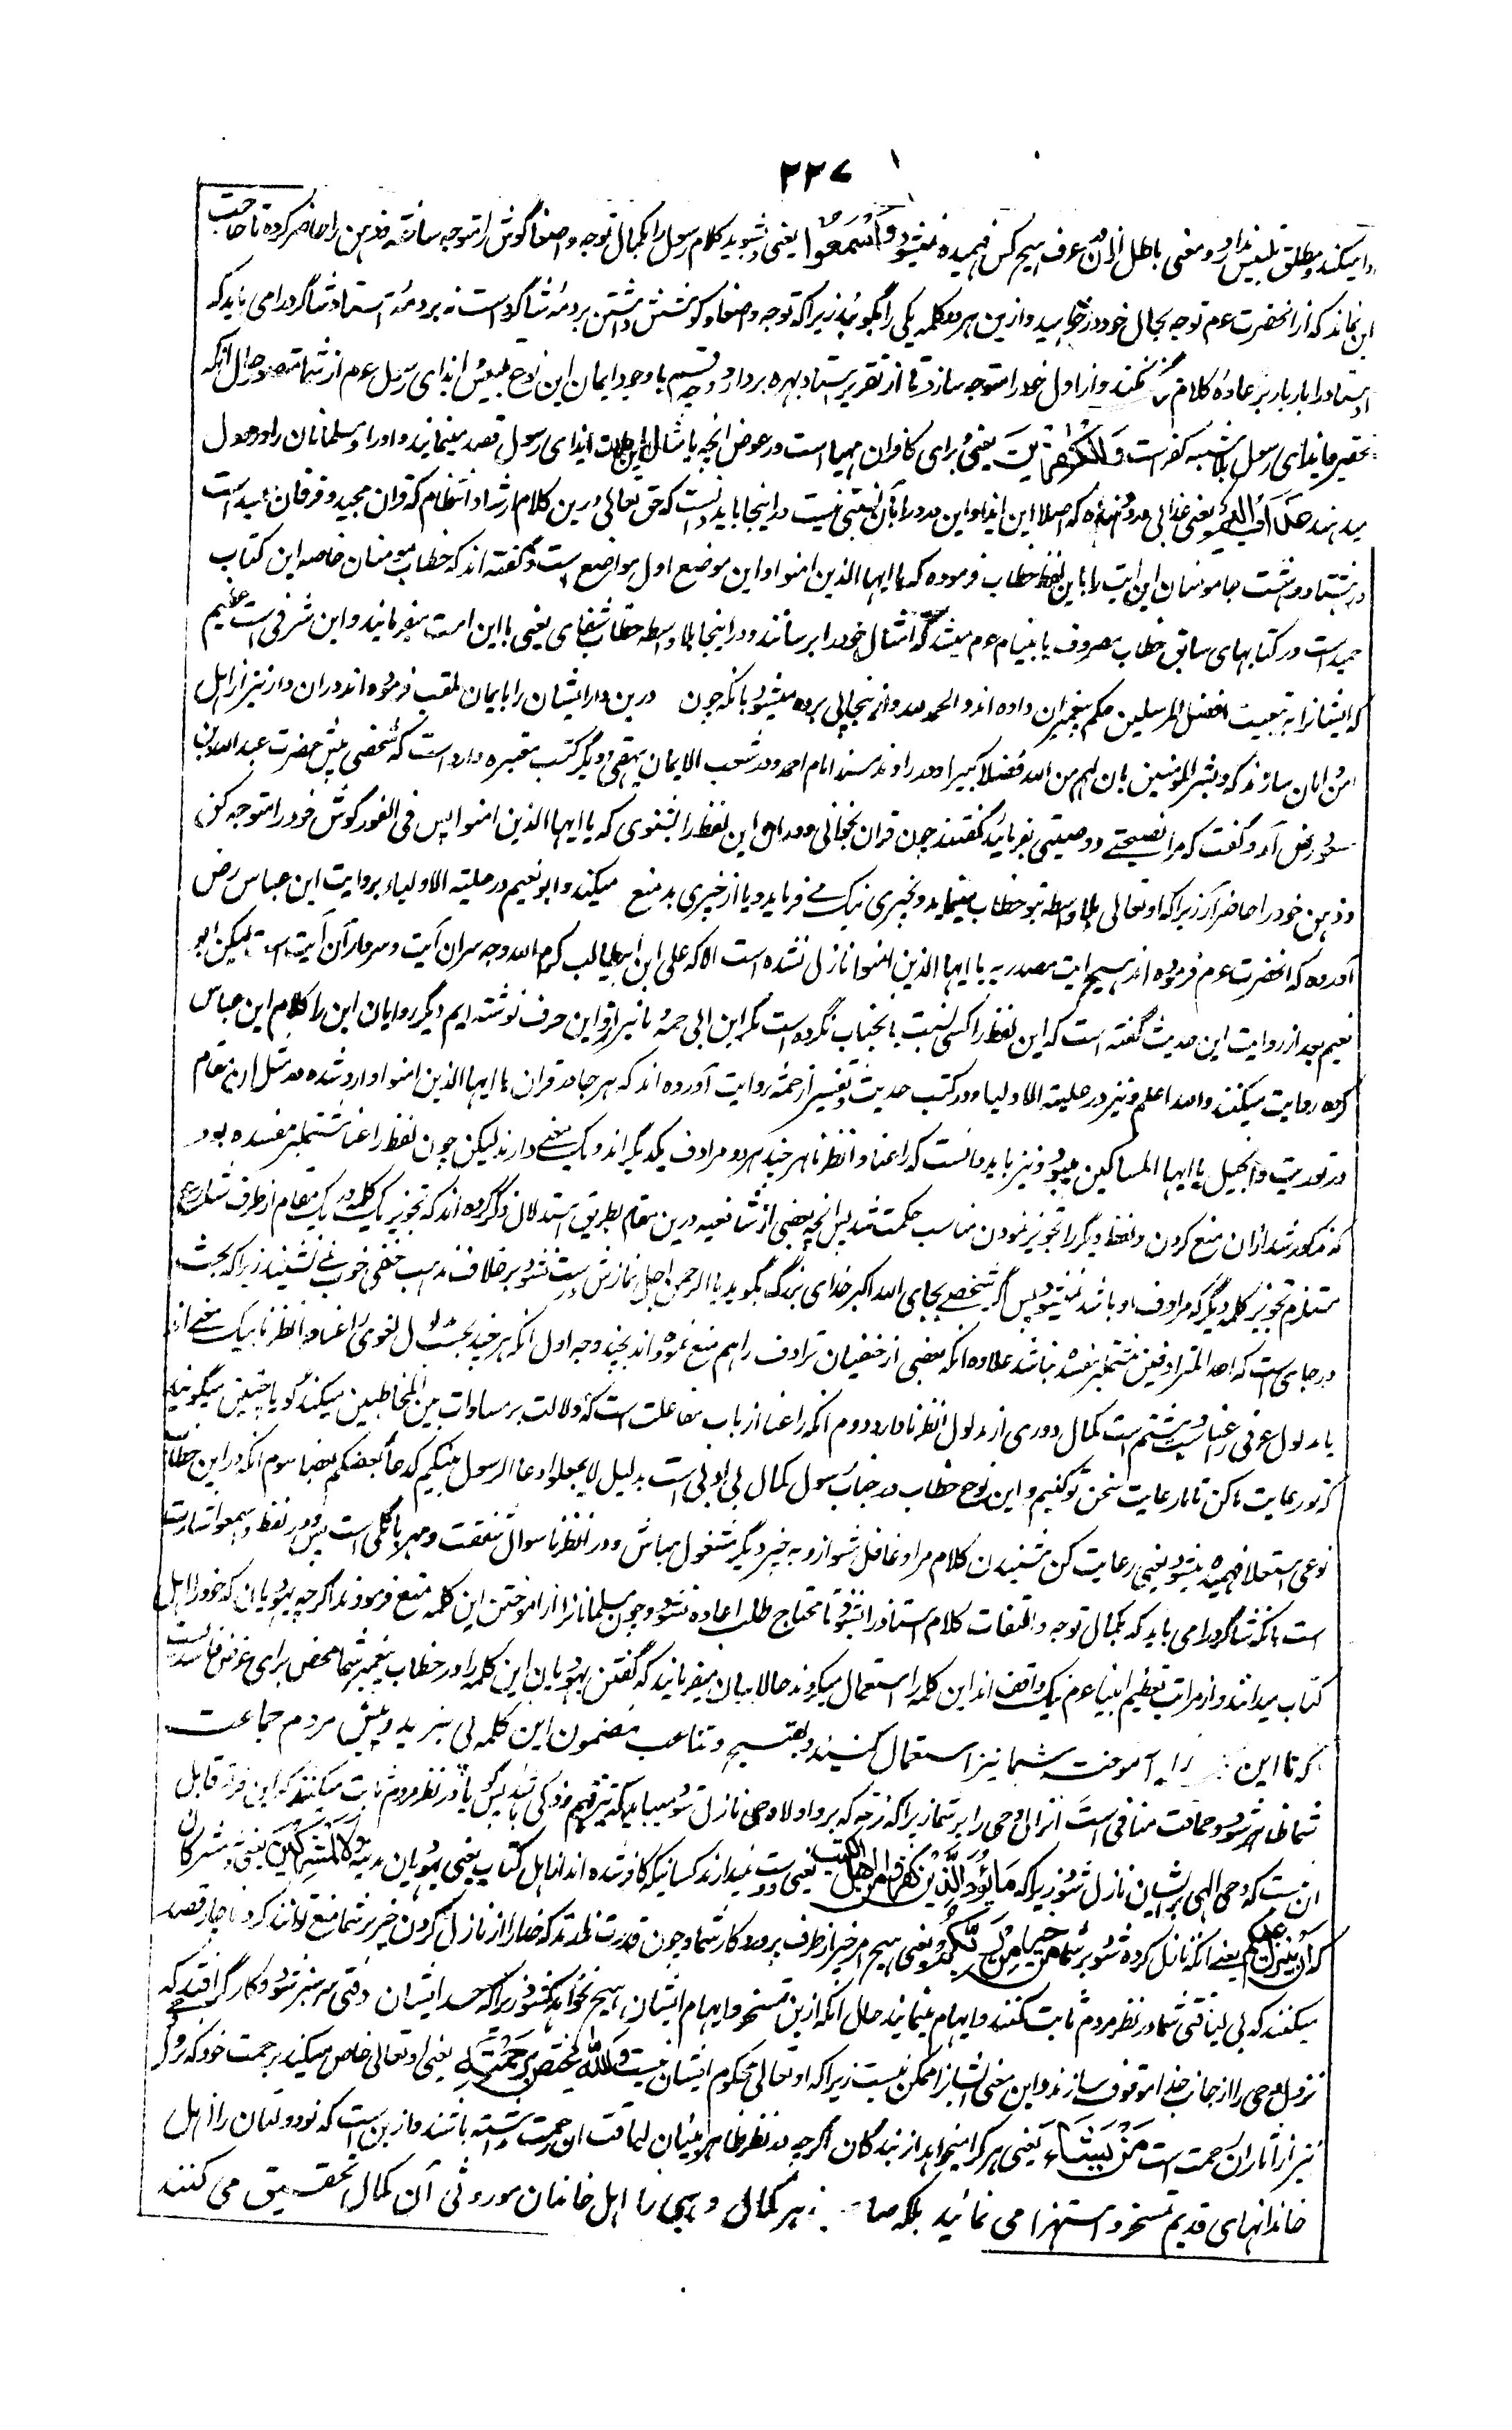 ۳۳۷
را میکند و مطلق تلبیس ندارد و معنی باطل ازان در عرف هیچ کس فهمیده نمیشود وَاسْمَعُوا یعنی و بشنوید کلام رسول را بکمال توجه و اصغا گوش را متوجه ساخته و ذهن را حاضر کرده تا حاجت
این نماند که از آنحضرت عم توجه بحال خود درخواهید و ازین هر دو کلمه یکی را بگوئید زیرا که توجه و اصغا و کوشش داشتن بر ذمهٔ شاگرد است نه بر ذمهٔ استاد شاگرد را می باید که
استاد را بار بار بر اعادهٔ کلام نکند و از اول خود را متوجه سازد تا از تقریر استاد بهره بردارد و باوجود ایمان این نوع ایذای رسول عم از شما متصور حال آنکه
تحقیر و ایذای رسول بلا شبهه کفر است وَلِلْكٰفِرِينَ یعنی برای کافران مهیا است در عوض آنچه ایذای رسول قصد مینمایند و او را و مسلمانان را در هول
میدهند عَذَابٌ اَلِيمٌ یعنی عذابی درد دهنده که اصلا این ایذا و این درد را بآن نسبتی نیست در اینجا باید دانست که حق تعالی درین کلام ارشاد انتظام که قرآن مجید و فرقان حمید است
در هشتاد و هشت جا مومنان این امت را باین لفظ خطاب فرموده که یا ایها الذین امنوا و این موضع اول مواضع است و گفته اند که خطاب مومنان خاصه این کتاب
حمید است در کتابهای سابق خطاب مصروف بانبیا عم میشد که امتان خود را برسانند و در اینجا بلا واسطه خطاب شفاهی یعنی با این امت میفرمایند و این شرفی است عظیم
که ایشانرا به تبعیت افضل المرسلین حکم پیغمبران داده اند و الحمد لله و ازینجا پی برده میشود بآنکه چون درین دار ایشان را بایمان ملقب فرموده اند دران دار نیز از اهل
امن و امان سازند که و بشر المومنین بان لهم من الله فضلا کبیرا و در مسند امام احمد و در شعب الایمان بیهقی و دیگر کتب معتبره وارد است که شخصی پیش حضرت عبد الله بن
مسعود رض آمد و گفت که مرا نصیحتی و وصیتی بفرمائید گفتند چون قرآن بخوانی و دران این لفظ را بشنوی که یا ایها الذین امنوا پس فی الفور گوش خود را متوجه کن
و ذهن خود را حاضر آر زیرا که او تعالی بلا واسطه بتو خطاب مینماید و بچیزی نیک می فرماید و یا از چیزی بد منع میکند و ابو نعیم در حلیة الاولیاء بروایت ابن عباس رض
آورده که آنحضرت عم فرموده اند هیچ آیت مصدر به یا ایها الذین امنوا نازل نشده است الا که علی ابن ابیطالب کرم الله وجهه سر آن آیت و سردار آن آیت است لیکن ابو
نعیم بعد از روایت این حدیث گفته است که این لفظ را کسی نسبت بآنجناب نکرده است مگر ابن ابی خیثمه ما نیز ازو این حرف نوشته ایم دیگر راویان این را کلام ابن عباس
کرده روایت میکنند و الله اعلم و نیز در حلیة الاولیاء و در کتب حدیث و تفسیر از خیثمه روایت آورده اند که هر جا در قرآن یا ایها الذین امنوا وارد شده در مثل این مقام
در توریت و انجیل یا ایها المساکین میبود و نیز باید دانست که راعنا و انظرنا هر چند هر دو مرادف یکدیگر اند و یک معنی دارند لیکن چون لفظ راعنا مشتمل بر مفسده بود
که مذکور شد ازان منع کردن و لفظ دیگر را تجویز نمودن مناسب حکمت شد پس آنچه بعضی از شافعیه درین مقام بطریق استدلال ذکر کرده اند که تجویز یک کلمه در یک مقام از طرف شارع
مستلزم تجویز کلمه دیگر که مرادف او باشد نمیشود پس اگر شخصی بجای الله اکبر خدای بزرگ بگوید یا الرحمن اجل نمازش درست نشود بر خلاف مذهب حنفی خوب نمی نشیند زیرا که بحث
در جای است که احد المترادفین مشتمل بر مفسده نباشد علاوه آنکه بعضی از حنفیان ترادف را هم منع نموده اند بچند وجه اول آنکه هر چند بحسب مدلول لغوی راعنا و انظرنا بیک معنی اند
یا مدلول عرفی راعنا که سب و شتم است کمال دوری از مدلول انظرنا دارد دوم آنکه راعنا از باب مفاعلت است که دلالت بر مساوات بین المخاطبین میکند گویا چنین میگوید
که تو رعایت ما کن تا ما رعایت سخن تو کنیم و این نوع خطاب در جناب رسول کمال بی ادبی است بدلیل لا تجعلوا دعاء الرسول بینکم کدعاء بعضکم بعضا سوم آنکه در این خطاب
نوعی استعلا فهمیده میشود یعنی رعایت کن بشنیدن کلام مرا و غافل مشو ازو به چیز دیگر مشغول مباش و در انظرنا سوال شفقت و مهربانگی است پس و در لفظ و اسمعوا اشارت
است بآنکه شاگرد را می باید که بکمال توجه و التفات کلام استاد را بشنود تا محتاج طلب اعاده نشود و چون مسلمانان را از آموختن این کلمه منع فرمودند اگرچه یهودیان که خود را اهل
کتاب میدانند و از مراتب تعظیم انبیا عم نیک واقف اند این کلمه را استعمال میکردند حالا بیان میفرمایند که گفتن یهودیان این کلمه را در خطاب پیغمبر شما محض برای غرض فاسد است
که تا این را آموخته شما نیز استعمال کنید و بقبح و شناعت مضمون این کلمه پی نبرید و پیش مردم حماقت
شما ظاهر شود و حماقت منافی است انزال وحی را بر شما زیرا که فرقه که برو اولا وحی نازل شود میباید که تیز فهم و ذکی باشد پس گویا در نظر مردم ثابت میکنند که این فرقه قابل
آن نیست که وحی الهی بر ایشان نازل شود زیرا که مَا يَوَدُّ الَّذِينَ كَفَرُوا مِنْ اَهْلِ الْكِتٰبِ یعنی دوست نمیدارند کسانیکه کافر شده اند از اهل کتاب یعنی یهودیان مدینه وَلَا الْمُشْرِكِينَ یعنی و نه مشرکان
که اَنْ يُنَزَّلَ عَلَيْكُمْ یعنی آنکه نازل کرده شود بر شما مِنْ خَيْرٍ مِنْ رَبِّكُمْ یعنی هیچ امر خیر از طرف پروردگار شما و چون قدرت ندارند که خدا را از نازل کردن خیر بر شما منع توانند کرد ناچار قصد
میکنند که بی لیاقتی شما در نظر مردم ثابت کنند و ایهام مینمایند حال آنکه ازین تمسخر و ایهام ایشان هیچ نخواهد کشود زیرا که حسد ایشان وقتی سرسبز شود و کارگر افتد که
نزول وحی را از جانب خدا موقوف سازند و این معنی ایشانرا ممکن نیست زیرا که او تعالی محکوم ایشان نیست وَاللّٰهُ يَخْتَصُّ بِرَحْمَتِهِ یعنی او تعالی خاص میکند برحمت خود که نزول وحی
نیز از آثار آن رحمت است مَنْ يَشَاءُ یعنی هر کرا میخواهد از بندگان اگرچه در نظر ظاهر بینان لیاقت آن رحمت نداشته باشند و ازین است که نو دولتان را اهل
خاندانهای قدیم تمسخر و استهزا می نمایند بلکه هر کمال وهبی را اهل خاندان موروثی آن کمال تحقیر می کنند